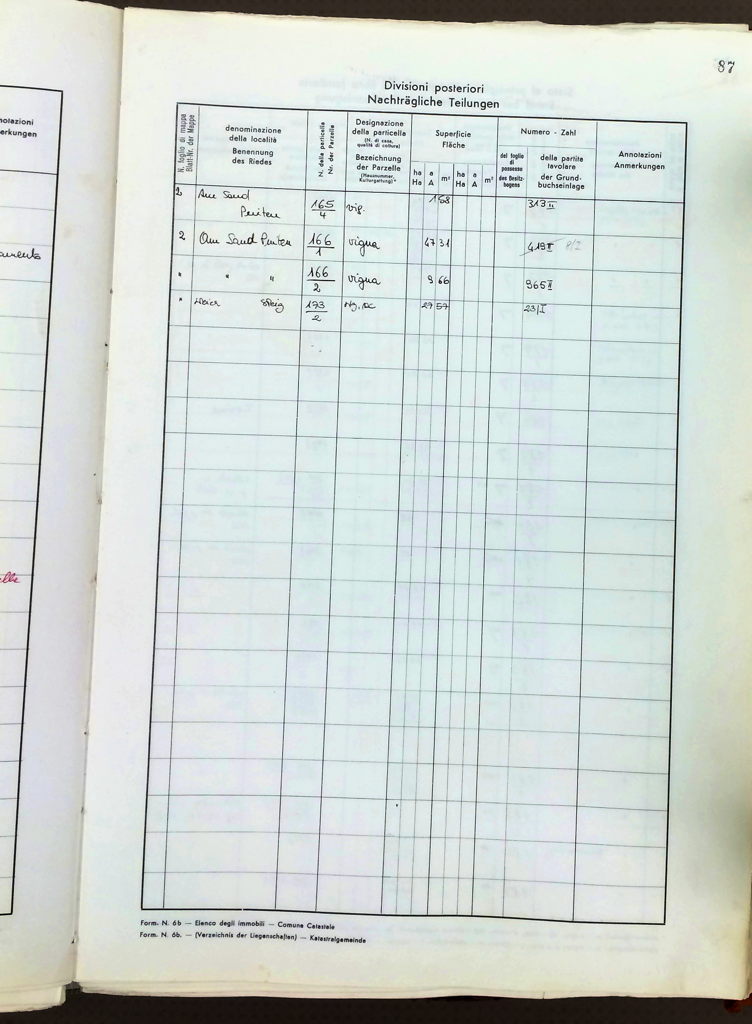 notazioni
merkungen
87
Divisioni posteriori
Nachträgliche Teilungen
N. foglio di mappa
Blatt-Nr. der Mappe
denominazione
della località
Benennung
des Riedes
N. della particella
Nr. der Parzelle
Designazione
della particella
(N. di casa,
qualità di coltura)
Bezeichnung
der Parzelle
(Hausnummer,
Kulturgattung)
Superficie
Fläche
ha a m² ha a m²
Ha A Ha A
Numero - Zahl
del foglio
di
possesso
des Besitz-
bogens
della partita
tavolare
der Grund-
buchseinlage
Annotazioni
Anmerkungen
2 Am Sand 165/4 vig. 1 58 313 II
2 Am Sand 166/1 vigna 47 31 419 II
" " " 166/2 vigna 9 66 965 II
" 193/2 29 57 23/I
Form. N. 6b — Elenco degli immobili — Comune Catastale
Form. N. 6b. — (Verzeichnis der Liegenschaften) — Katastralgemeinde